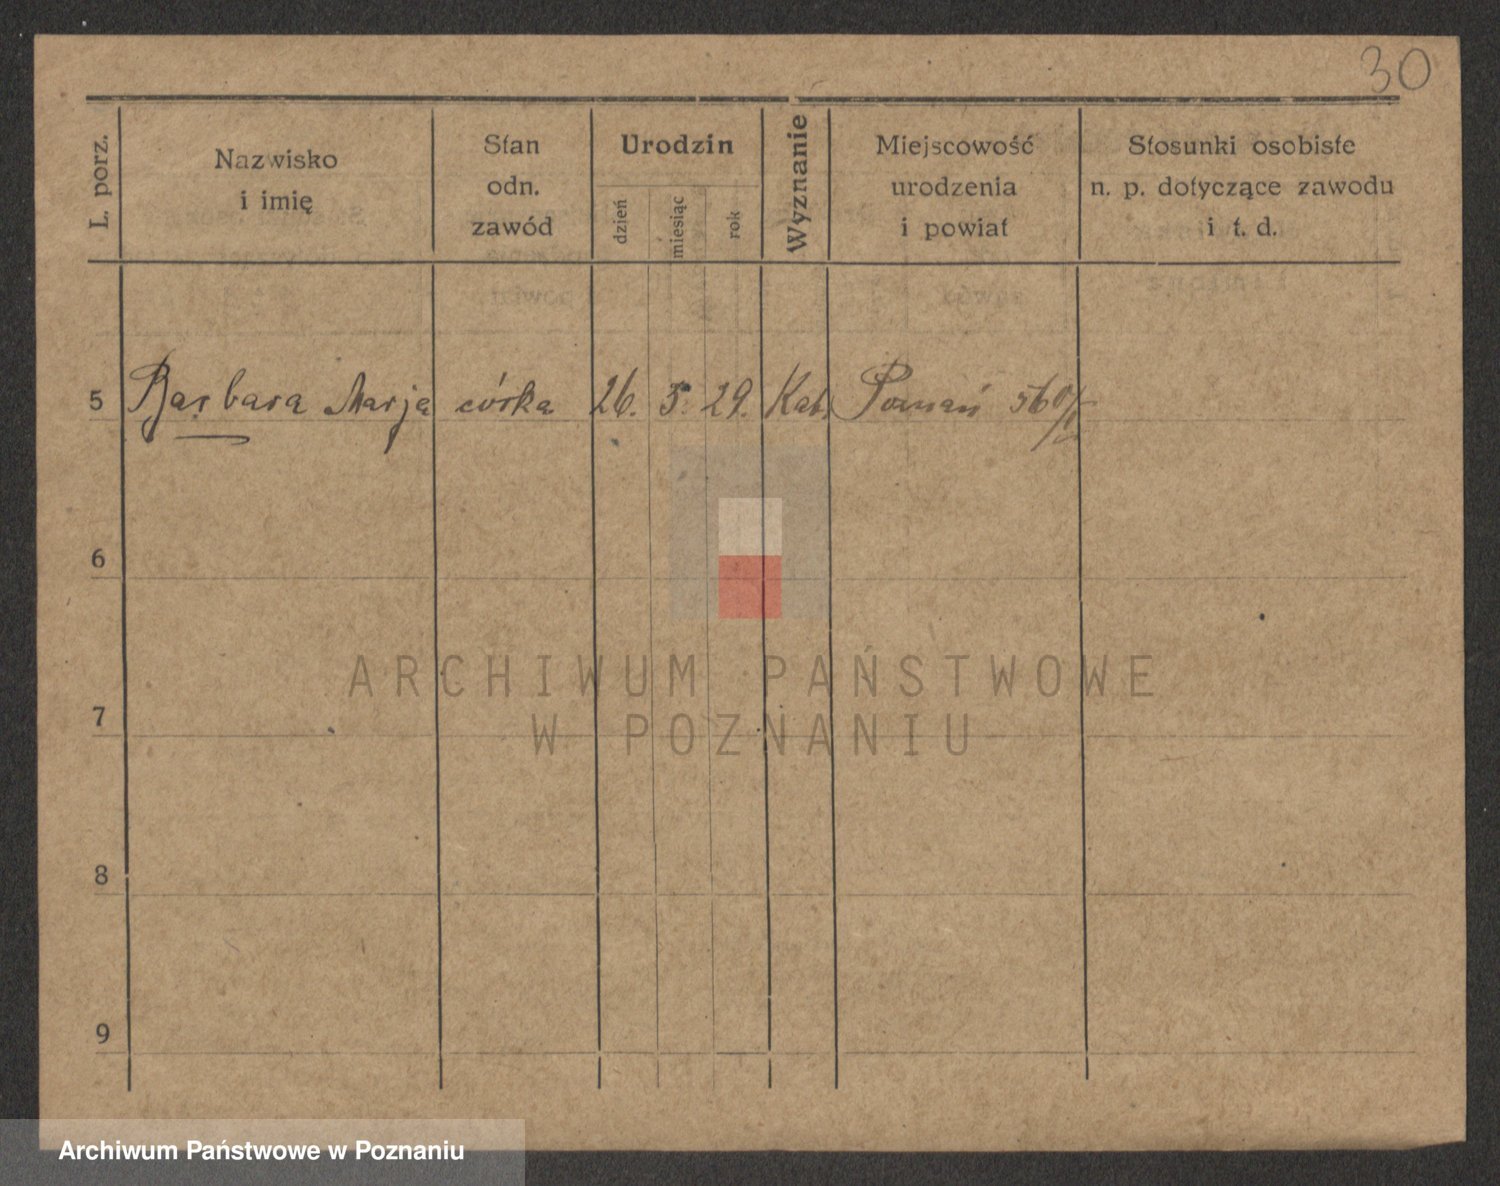 30
L. porz.
Nazwisko
i imię
Stan
odn.
zawód
Urodzin
dzień
miesiąc
rok
Wyznanie
Miejscowość
urodzenia
i powiat
Stosunki osobiste
n. p. dotyczące zawodu
i t. d.
5 Barbara Marja córka 26. 3. 29. Kat. Poznań
6
7
8
9
ARCHIWUM PAŃSTWOWE
W POZNANIU
Archiwum Państwowe w Poznaniu